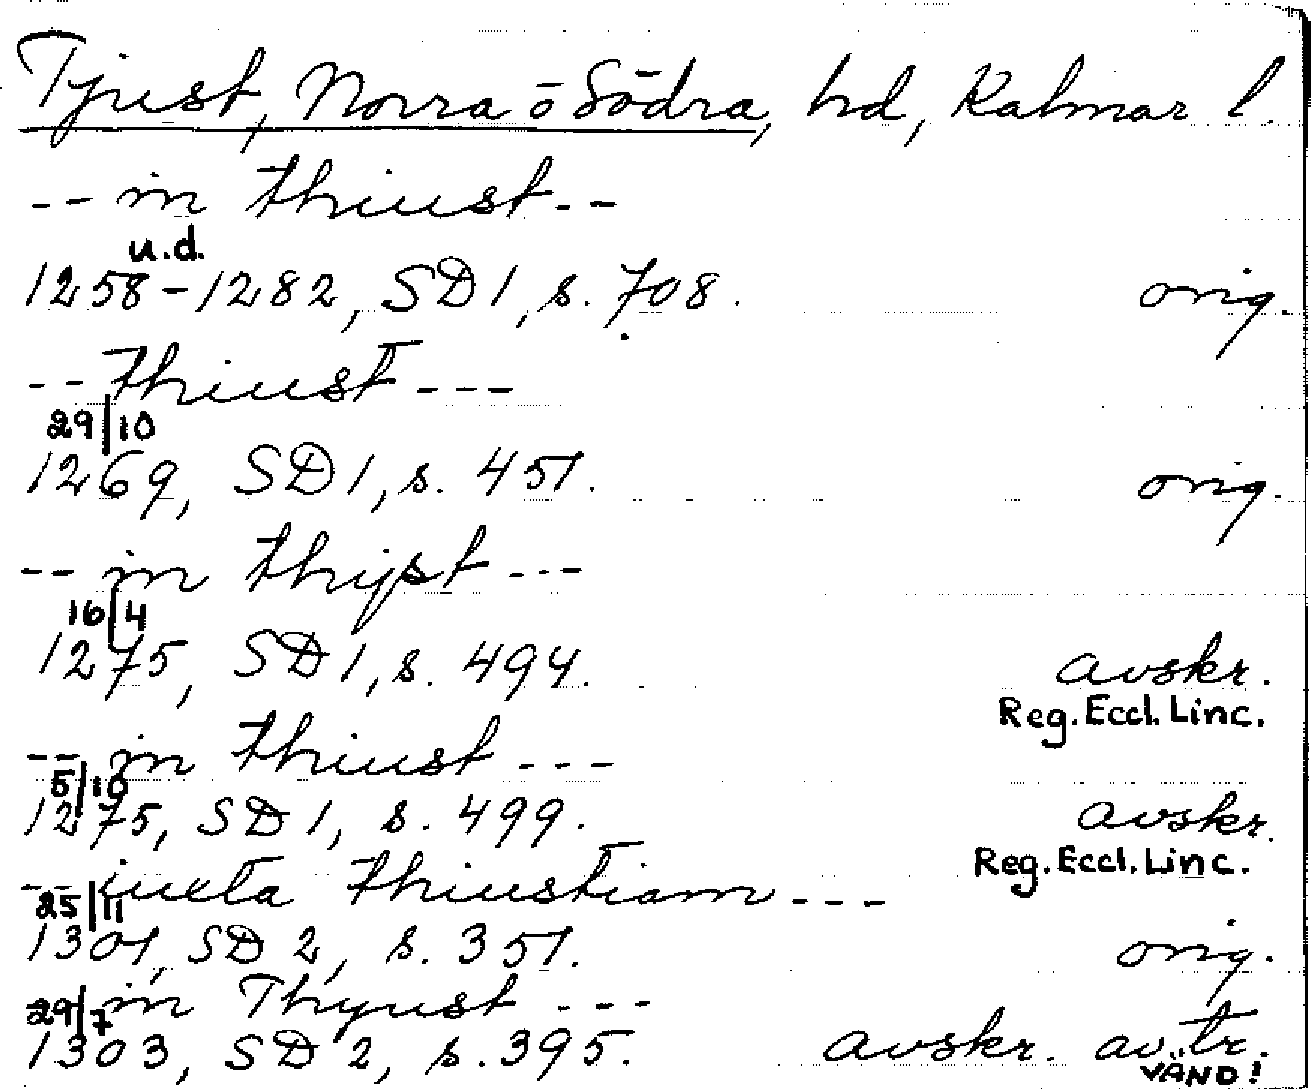 Tjust, Norra o Södra, hd, Kalmar l.
-- in thiust --
u.d.
1258-1282, SD 1, s. 708. orig.
-- thiust ---
29/10
1269, SD 1, s. 451. orig.
-- in thijst ---
16/4
1275, SD 1, s. 494. avskr.
Reg. Eccl. Linc.
-- in thiust ---
5/10
1275, SD 1, s. 499. avskr.
Reg. Eccl. Linc.
-- iuxta thiustiam ---
25/11
1301, SD 2, s. 351. orig.
in Thyust ---
29/7
1303, SD 2, s. 395. avskr. av tr.
VÄND!